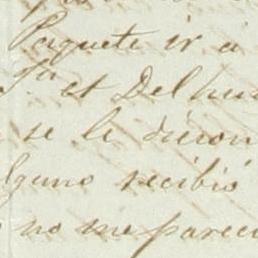 Paquete ir á
et Del
se le dieron
lguno recibió
no me pareci